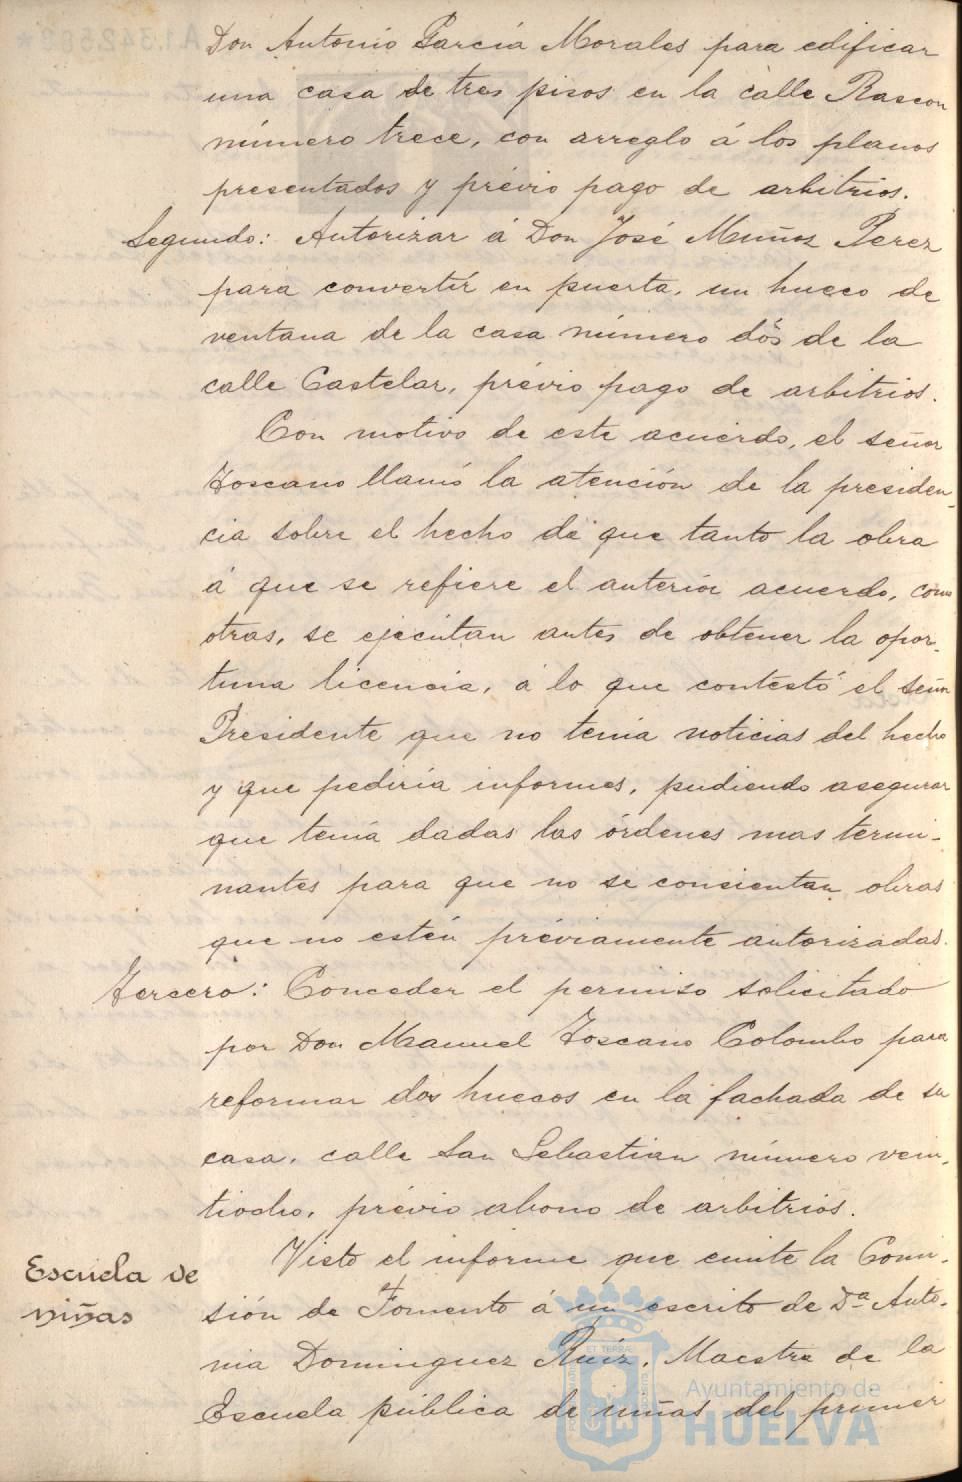 Don Antonio García Morales para edificar
una casa de tres pisos en la calle Rascon
número trece, con arreglo á los planos
presentados y prévio pago de arbitrios.
Segundo: Autorizar á Don José Muñoz Perez
para convertir en puerta, un hueco de
ventana de la casa número dos de la
calle Castelar, prévio pago de arbitrios.
Con motivo de este acuerdo, el señor
Toscano llamó la atención de la presiden-
cia sobre el hecho de que tanto la obra
á que se refiere el anterior acuerdo, como
otras, se ejecutan antes de obtener la opor-
tuna licencia, á lo que contestó el señor
Presidente que no tenia noticias del hecho
y que pediria informes, pudiendo asegurar
que tenía dadas las órdenes mas termi-
nantes para que no se consientan obras
que no estén préviamente autorizadas.
Tercero: Conceder el permiso solicitado
por Don Manuel Toscano Colombo para
reformar dos huecos en la fachada de su
casa, calle San Sebastian número vein-
tiocho, prévio abono de arbitrios.
Escuela de
niñas
Visto el informe que emite la Comi-
sión de Fomento á un escrito de Dª Anto-
nia Dominguez Ruiz, Maestra de la
Escuela pública de niñas del primer
Ayuntamiento de
HUELVA